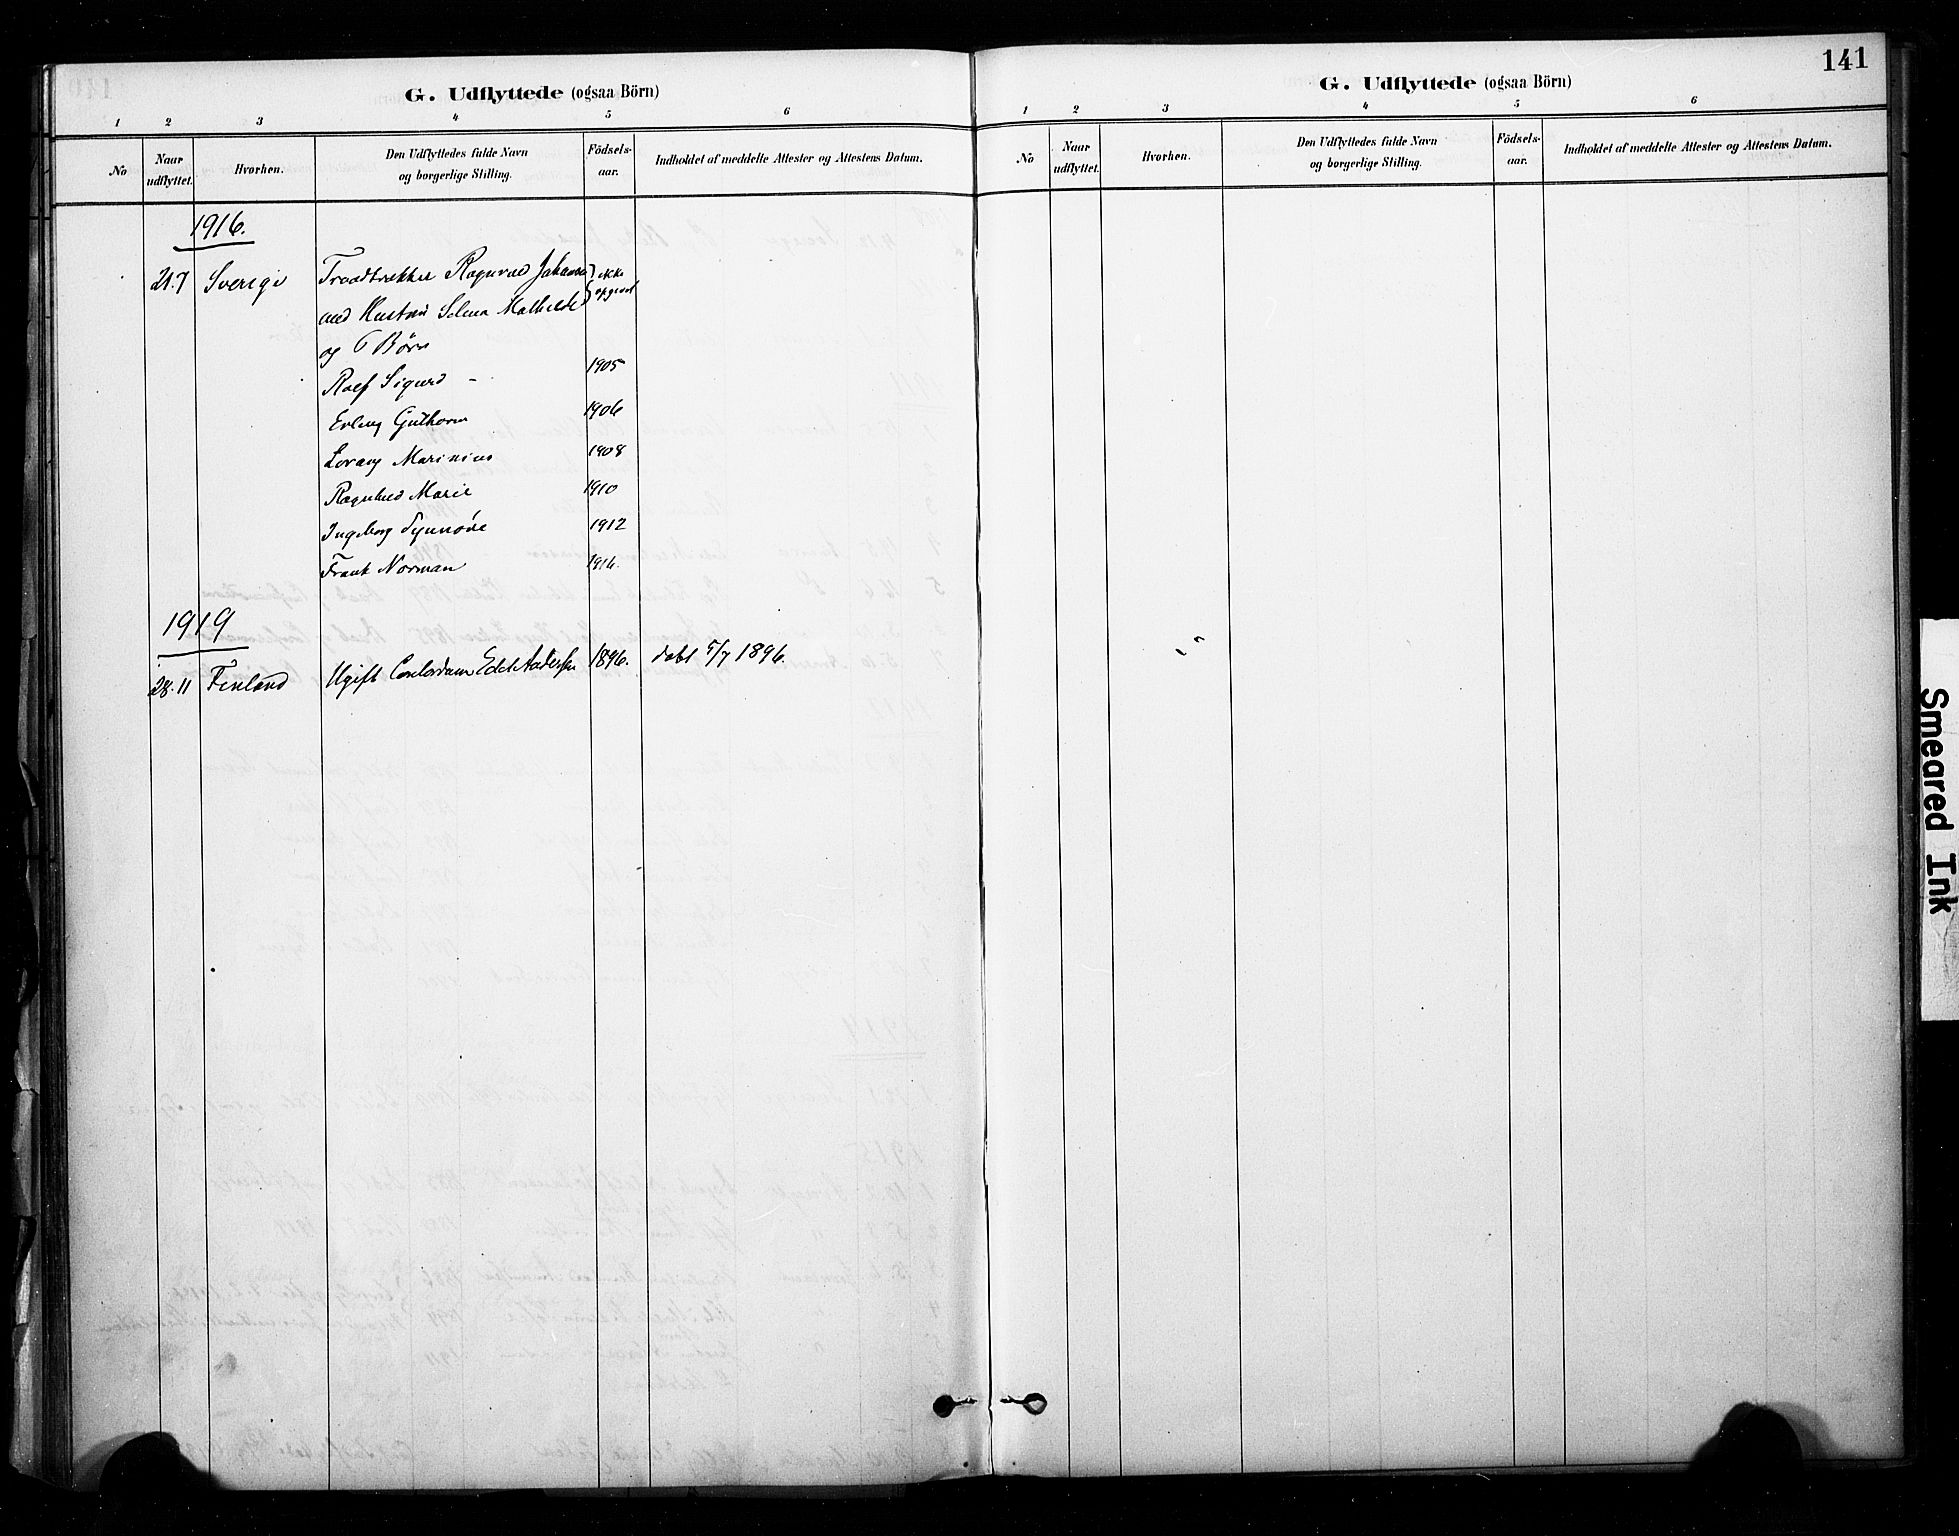 141
G. Udflyttede (ogsaa Börn)
1 2 3 4 5 6
No
Naar udflyttet.
Hvorhen.
Den Udflyttedes fulde Navn og borgerlige Stilling.
Födsels-aar.
Indholdet af meddelte Attester og Attestens Datum.
1916.
21.7 Sverige Traadtrækker Ragnvad Johansen } ikke
med Hustru Selma Mathilde } opgivet
og 6 Børn
Rolf Sigurd - 1905
Erling Guthorm 1906
Lorang Marinius 1908
Ragnhild Marie 1910
Ingeborg Synnøve 1912
Frank Norman 1916.
1919
28.11 Finland Ugift Andersen 1896. døbt 5/7 1896.
G. Udflyttede (ogsaa Börn)
1 2 3 4 5 6
No
Naar udflyttet.
Hvorhen.
Den Udflyttedes fulde Navn og borgerlige Stilling.
Födsels-aar.
Indholdet af meddelte Attester og Attestens Datum.
Smeared Ink